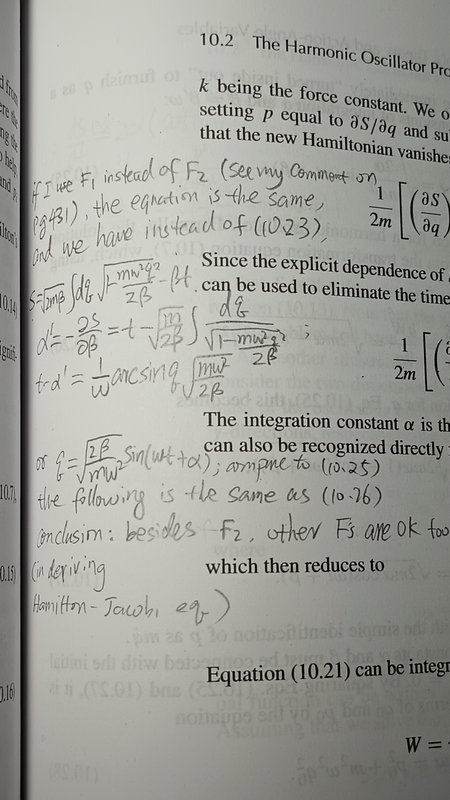 10.2 The Harmonic Oscillator Pro
k being the force constant. We o
setting p equal to ∂S/∂q and su
that the new Hamiltonian vanishe
if I use F₁ instead of F₂ (see my comment on
pg 431), the equation is the same,
and we have instead of (10.23),
1/2m [(∂S/∂q)
Since the explicit dependence of
can be used to eliminate the time
S=√2mβ ∫dq √1-mω²q²/2β - βt
α'=-∂S/∂β = t-√m/2β ∫ dq/√1-mω²q²/2β ;
1/2m [(
t-α' = 1/ω arcsin q √mω²/2β
The integration constant α is th
can also be recognized directly
or q = √2β/mω² sin(ωt+α); compare to (10.25)
the following is the same as (10.26)
Conclusion: besides F₂, other F's are ok too
(in deriving
Hamilton-Jacobi eq)
which then reduces to
Equation (10.21) can be integr
W =